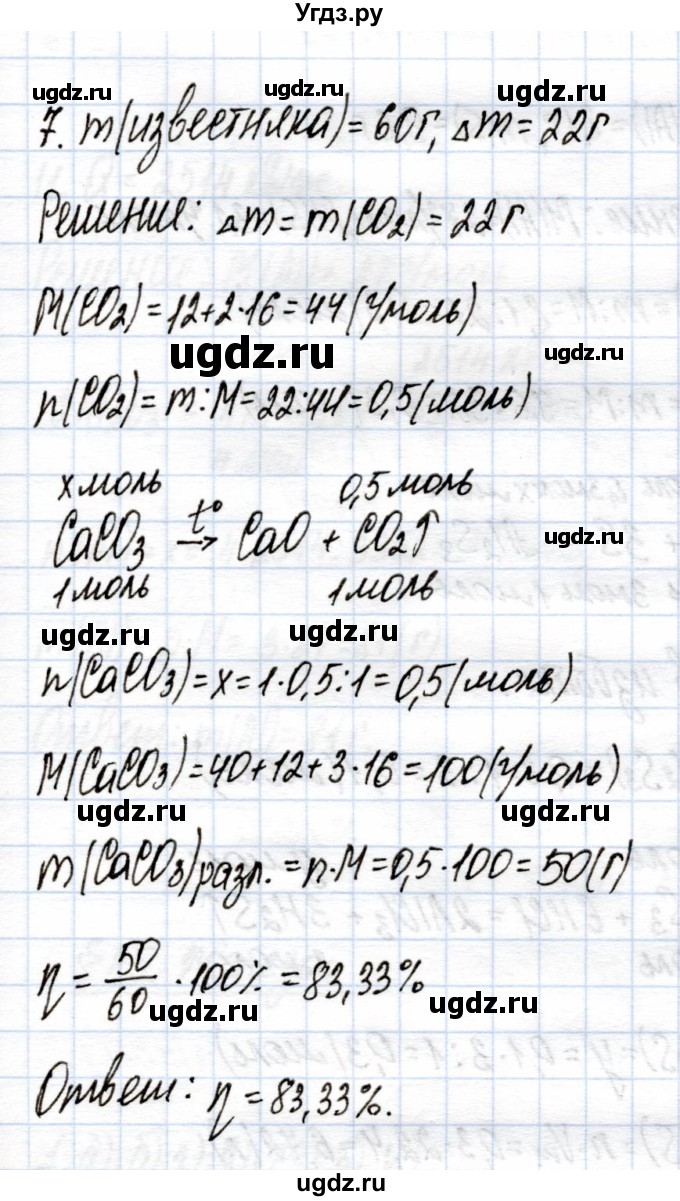 Угдз.ру
ugdz.ru ugdz.ru ugdz.ru
7. m(известняка) = 60г, Δm = 22г
Решение: Δm = m(CO₂) = 22г
M(CO₂) = 12+2·16 = 44 (г/моль)
ugdz.ru ugdz.ru
n(CO₂) = m:M = 22:44 = 0,5 (моль)
x моль 0,5 моль
CaCO₃ t°→ CaO + CO₂↑
ugdz.ru
1 моль 1 моль
ugdz.ru ugdz.ru
n(CaCO₃) = x = 1·0,5:1 = 0,5 (моль)
M(CaCO₃) = 40+12+3·16 = 100 (г/моль)
ugdz.ru ugdz.ru
m(CaCO₃)разл. = n·M = 0,5·100 = 50(г)
η = 50/60 ·100% = 83,33%
ugdz.ru ugdz.ru
Ответ: η = 83,33%.
ugdz.ru ugdz.ru
ugdz.ru